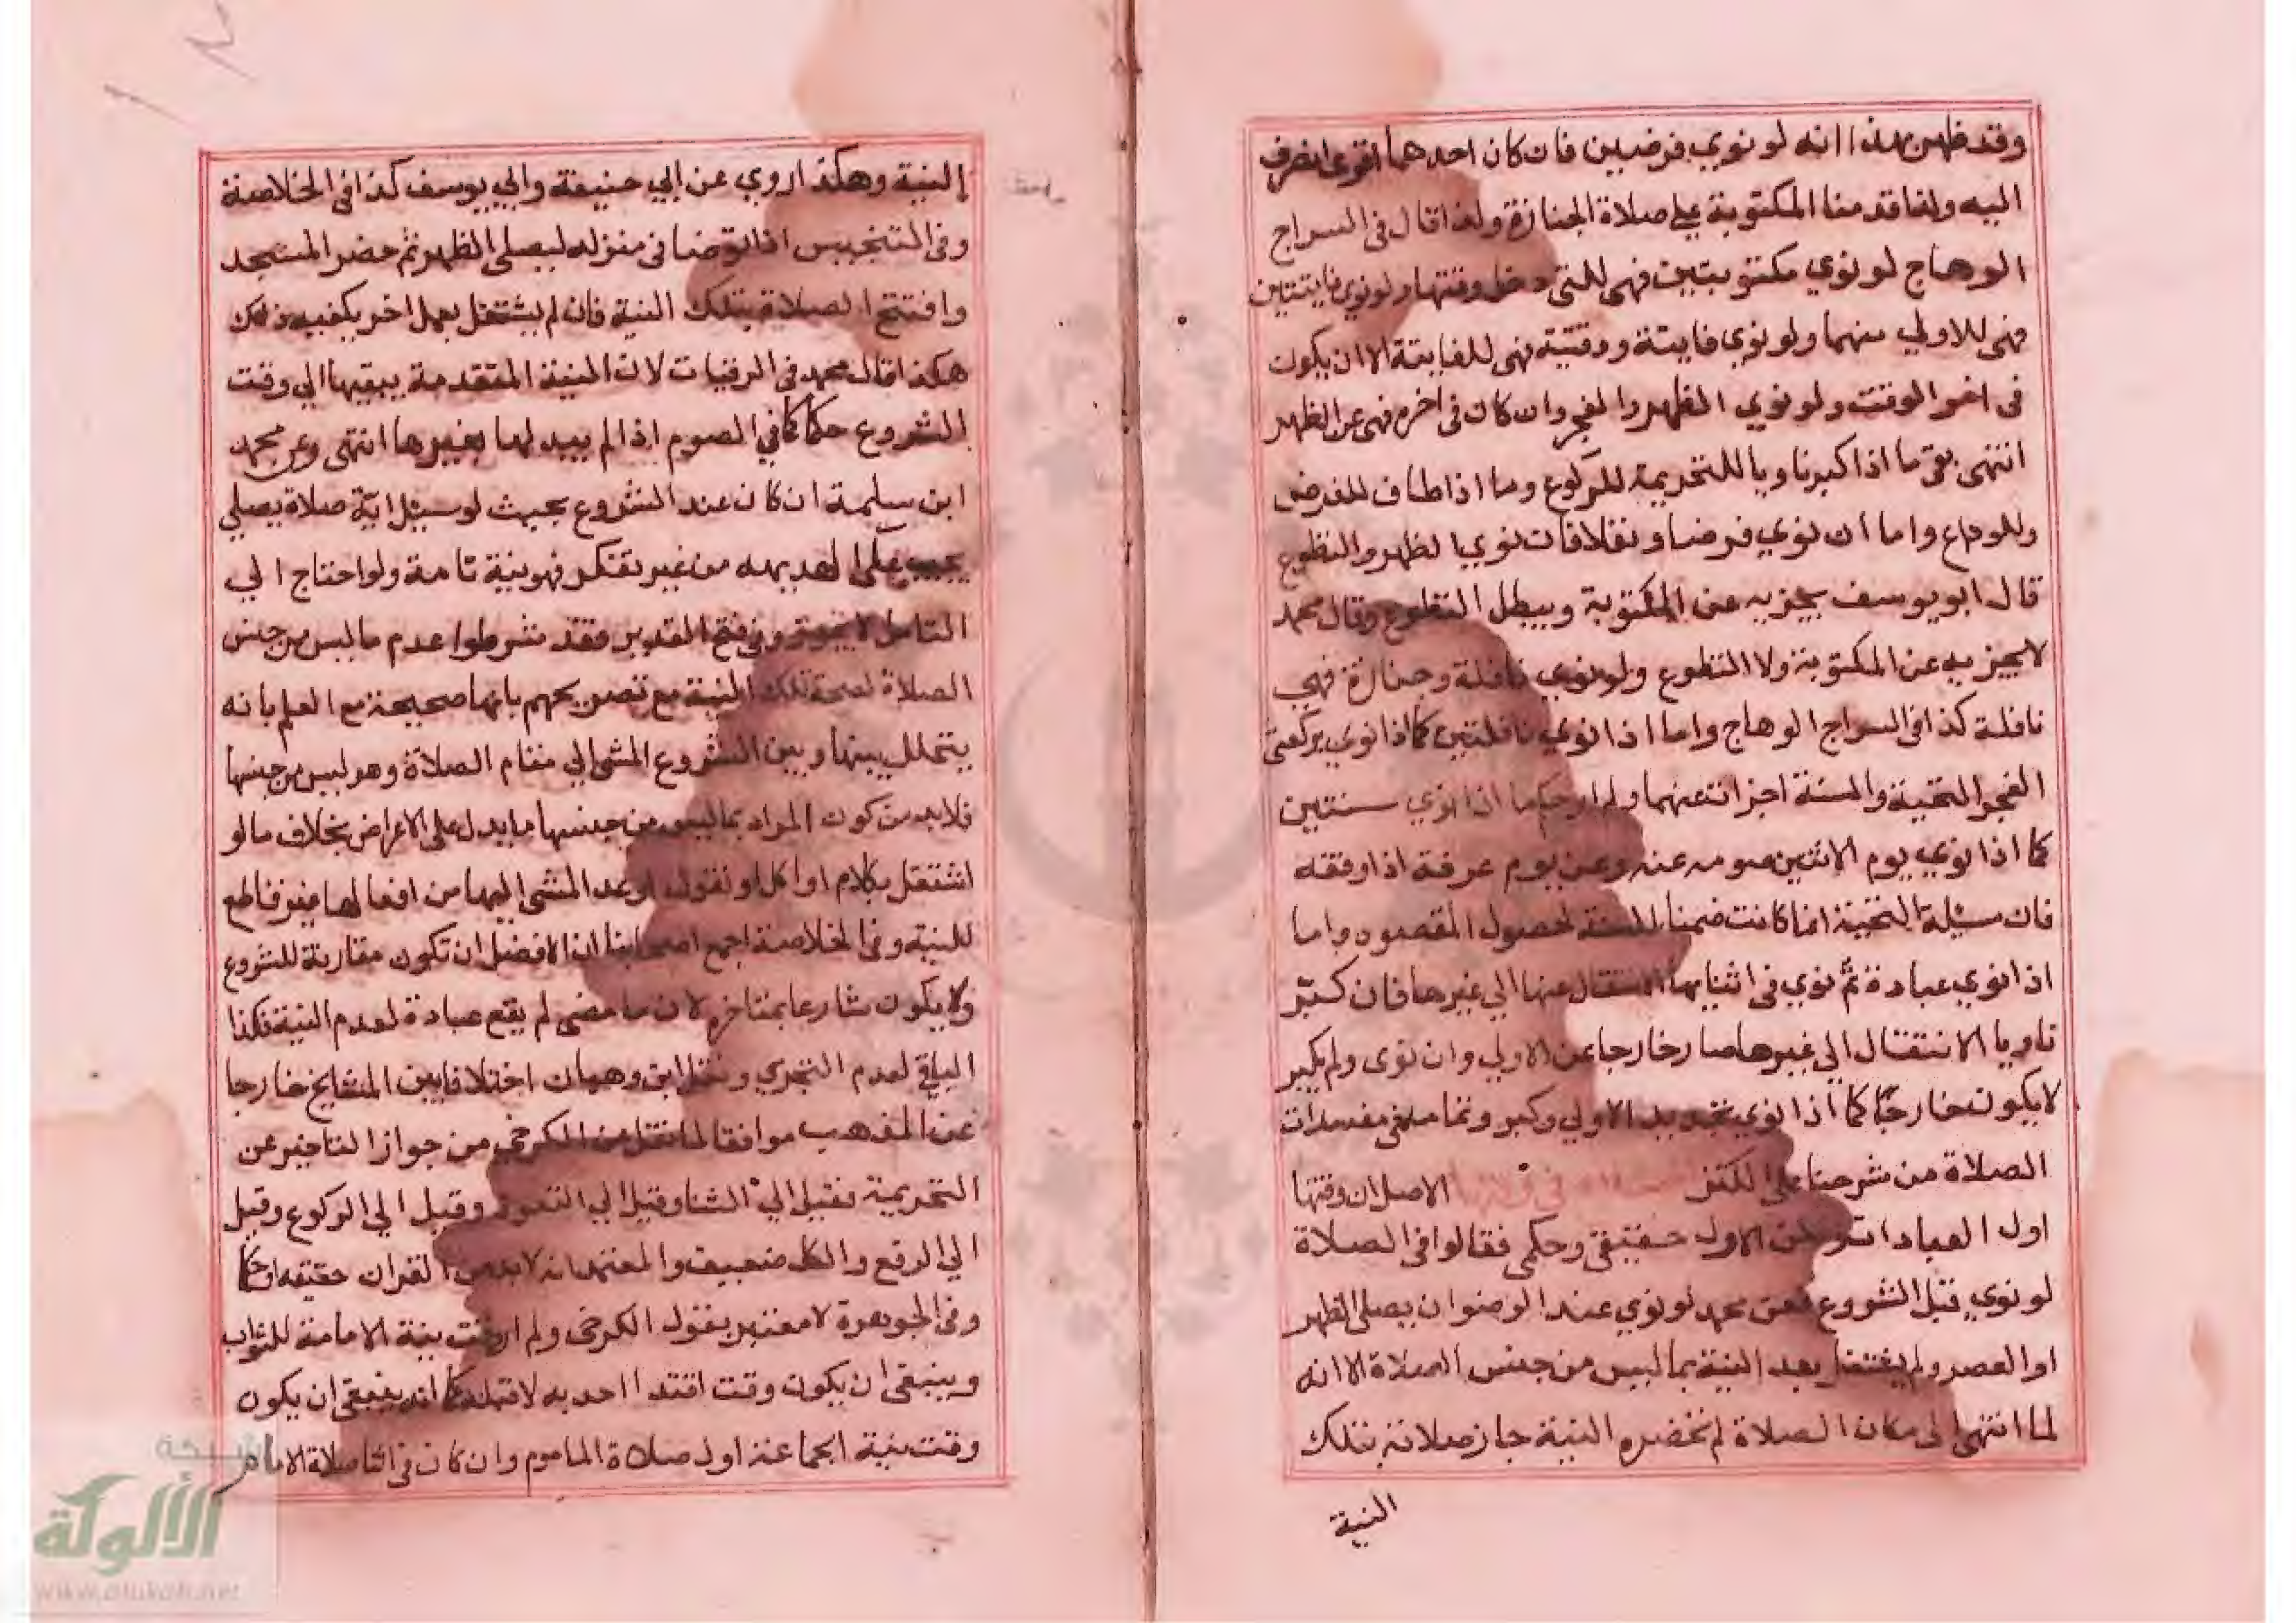 وقد ظهر بهذا انه لو نوي فرضين فان كان احدهما اقوى انصرف
اليه ولذا قدمنا المكتوبة علي صلاة الجنازة ولذا قال فى السراج
الوهاج لو نوي مكتوبتين فهى للتى دخل وقتها ولو نوي فايتتين
فهى للاولي منهما ولو نوي فايتة ووقتية فهى للفايتة الا ان يكون
فى اخر الوقت ولو نوي الظهر والفجر وان كان فى اخره فهى عن الظهر
انتهى بقى ما اذا كبر ناويا للتحريمة للركوع وما اذا طاف للفرض
وللوداع واما ان نوي فرضا ونفلا فان نوي الظهر والتطوع
قال ابو يوسف يجزيه عن المكتوبة ويبطل التطوع وقال محمد
لا يجزيه عن المكتوبة ولا التطوع ولو نوي نافلة وجنازة فهي
نافلة كذا فى السراج الوهاج واما اذا نوي نافلتين كما اذا نوي بركعتى
الفجر التحية والسنة اجزات عنهما ولم ار حكم ما اذا نوي سنتين
كما اذا نوي يوم الاثنين صومه عنه وعن يوم عرفة اذا وفقه
فان مسئلة التحية انما كانت ضمنا للسنة لحصول المقصود واما
اذا نوي عبادة ثم نوي فى اثنايها الانتقال عنها الي غيرها فان كبّر
ناويا الانتقال الي غيرها صار خارجا عن الاولي وان نوى ولم يكبر
لا يكون خارجًا كما اذا نوي تجديد الاولي وكبر وتمامه فى مفسدات
الصلاة من شرحنا على الكنز الاصل ان وقتها
اول العبادات ولكن الاول حقيقى وحكمى فقالوا فى الصلاة
لو نوي قبل الشروع فعن محمد لو نوي عند الوضو ان يصلى الظهر
او العصر ولم يشتغل بعد النية بما ليس من جنس الصلاة الا انه
لما انتهى الى مكان الصلاة لم تحضره النية جازت صلاته بتلك
النية
النية وهكذا روي عن ابي حنيفة وابي يوسف كذا فى الخلاصة
وفى التجنيس اذا توضا فى منزله ليصلى الظهر ثم حضر المسجد
وافتتح الصلاة بتلك النية فان لم يشتغل بعمل اخر يكفيه ذلك
هكذا قال محمد فى الرقيات لان النية المتقدمة يبقيها الي وقت
الشروع حكما كما فى الصوم اذا لم يبدلها بغيرها انتهى وعن محمد
ابن سلمة ان كان عند الشروع بحيث لو سيل اية صلاة يصلي
يجيب على البديهه من غير تفكر فهو نية تامة ولو احتاج الي
التامل لا يجوز وفى فتح القدير فقد شرطوا عدم ما ليس من جنس
الصلاة لصحة تلك النية مع تصريحهم بانها صحيحة مع العلم بانه
يتخلل بينها وبين الشروع المشى الي مقام الصلاة وهو ليس من جنسها
فلا بد من كون المراد بما ليس من جنسها ما يدل على الاعراض بخلاف ما لو
اشتغل بكلام او اكل او نقول او عد المشى اليها من افعالها غير قاطع
للنية وفى الخلاصة اجمع اصحابنا ان الافضل ان تكون مقارنة للشروع
ولا يكون شارعا بمتاخر لان ما مضى لم يقع عبادة لعدم النية فكذا
الباقى لعدم التجزي ونقل ابن وهبان اختلافا بين المشايخ خارجا
عن المذهب موافقا لما نقل عن الكرخى من جواز التاخير عن
التحريمة فقيل الي الثنا وقيل الي التعوذ وقيل الي الركوع وقيل
الي الرفع والكل ضعيف والمعتمد انه لا بد من القران حقيقة او حكما
وفى الجوهرة لا معتبر بقول الكرخى ولم ار وقت نية الامامة للثواب
وينبغى ان يكون وقت اقتدا احد به لا قبله كما انه ينبغى ان يكون
وقت نية الجماعة اول صلاة الماموم وان كان فى اثنا صلاة الامام
شبكة
الألوكة
www.alukah.net